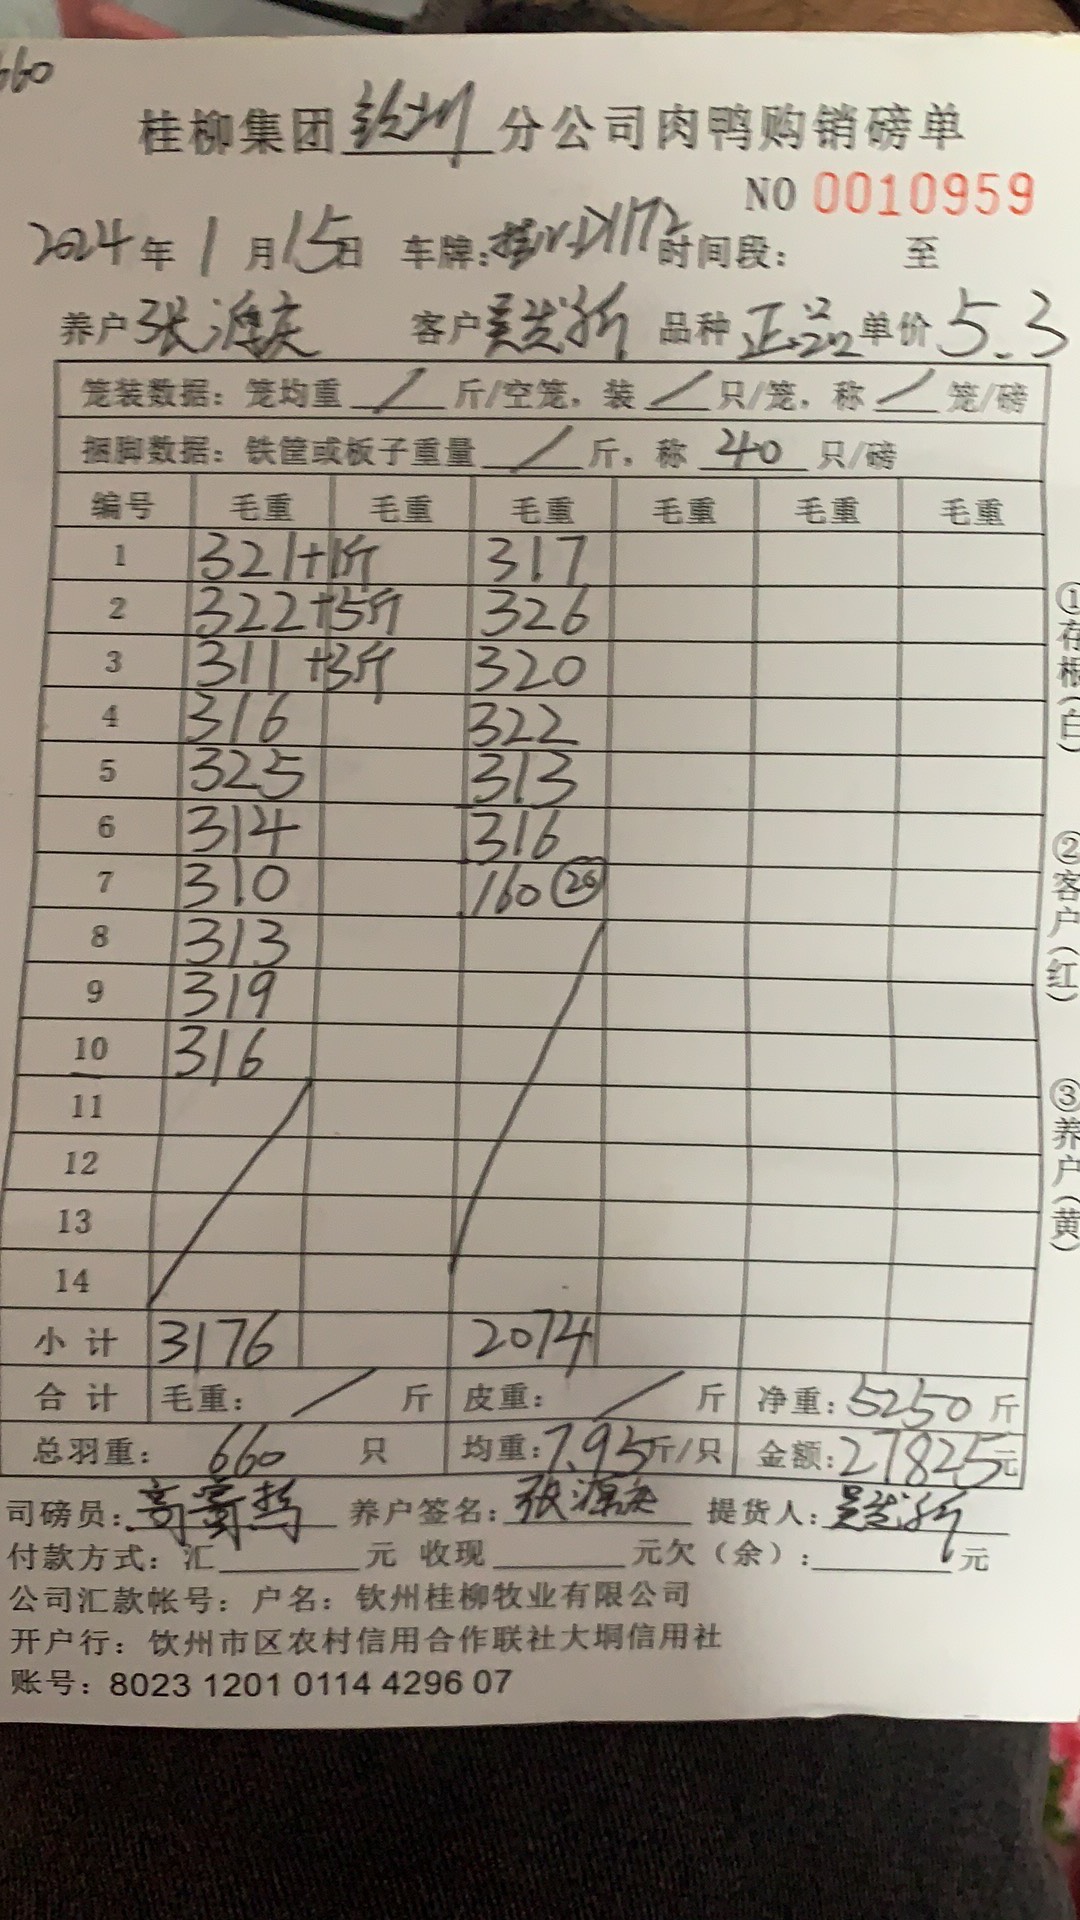 660
桂柳集团钦州分公司肉鸭购销磅单
NO 0010959
2024年1月15日 车牌: 时间段: 至
养户张源庆 客户 品种正品 单价5.3
笼装数据: 笼均重/斤/空笼, 装/只/笼, 称/笼/磅
捆脚数据: 铁筐或板子重量/斤, 称40只/磅
编号 毛重 毛重 毛重 毛重 毛重 毛重
1 321+1斤 317
2 322+5斤 326
3 311+3斤 320
4 316 322
5 325 313
6 314 316
7 310 160 (26)
8 313
9 319
10 316
11
12
13
14
小计 3176 2074
合计 毛重: / 斤 皮重: / 斤 净重: 5250斤
总羽重: 660 只 均重: 7.95斤/只 金额: 27825元
司磅员: 养户签名: 张源庆 提货人:
付款方式: 汇 元 收现 元欠(余): 元
公司汇款帐号: 户名: 钦州桂柳牧业有限公司
开户行: 饮州市区农村信用合作联社大垌信用社
账号: 8023 1201 0114 4296 07
①存根(白)
②客户(红)
③养户(黄)